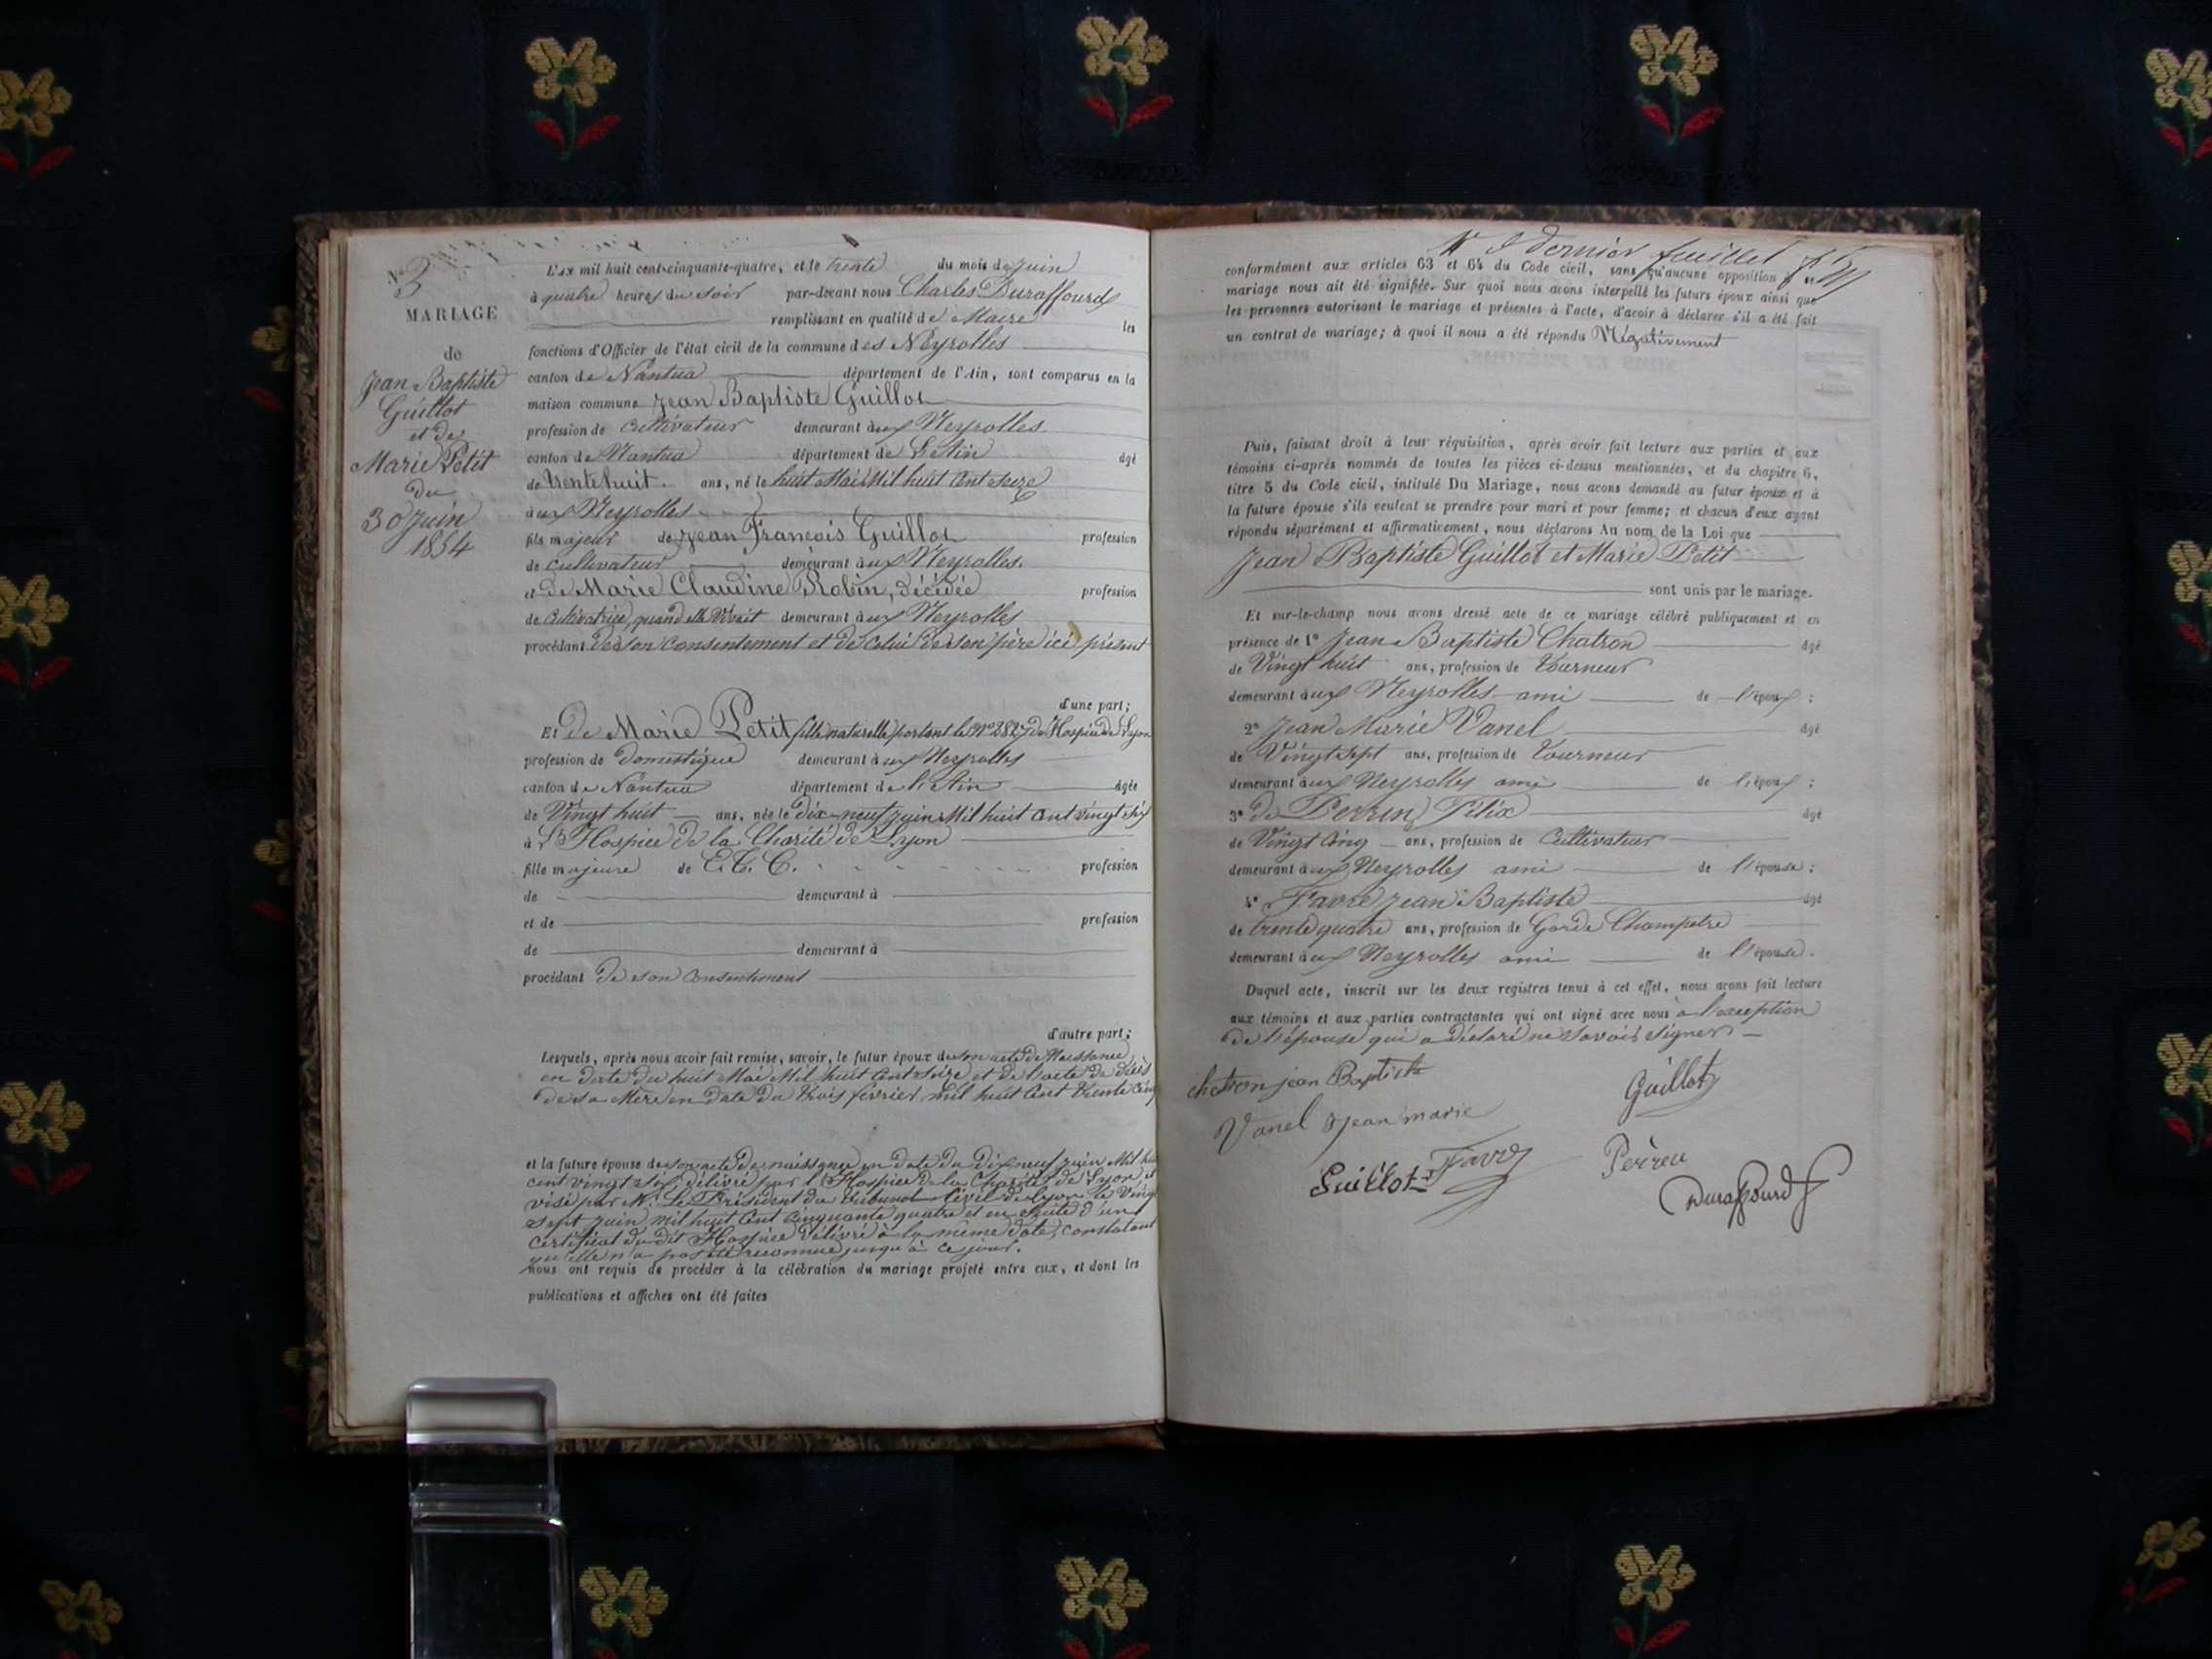 No 3
MARIAGE
de
Jean Baptiste
Guillot
et de
Marie Petit
du
30 Juin
1854
L'AN mil huit cent-cinquante-quatre, et le trente du mois de Juin
à quatre heures du soir par-devant nous Charles Duraffourd
remplissant en qualité de Maire les
fonctions d'Officier de l'état civil de la commune des Neyrolles
canton de Nantua département de l'Ain, sont comparus en la
maison commune Jean Baptiste Guillot
profession de cultivateur demeurant aux Neyrolles
canton de Nantua département de L'Ain âgé
de trente huit ans, né le huit Mai Mil huit Cent seize
aux Neyrolles
fils majeur de Jean François Guillot profession
de cultivateur demeurant aux Neyrolles.
et de Marie Claudine Robin, décédée profession
de Cultivatrice, quand elle Vivait demeurant aux Neyrolles
procédant de son consentement et de celui de son père ici présent
d'une part;
Et de Marie Petit fille naturelle portant le No 2827 de Hospice de Lyon
profession de Domestique demeurant aux Neyrolles
canton de Nantua département de l'Ain âgée
de Vingt huit ans, née le dix-neuf juin Mil huit Cent vingt six
à L'Hospice de la Charité de Lyon
fille majeure de E. T. C. profession
de demeurant à
et de profession
de demeurant à
procédant de son consentement
d'autre part;
Lesquels, après nous avoir fait remise, savoir, le futur époux de son acte de Naissance
en date du huit Mai Mil huit Cent seize et de l'acte de décès
de sa Mère en date du trois février Mil huit Cent trente Cinq
et la future épouse de son acte de naissance en date du Dix neuf juin Mil huit
cent vingt six, délivré par l'Hospice de la Charité de Lyon et
visé par Mr Le Président du tribunal Civil de Lyon le Vingt
sept juin mil huit Cent Cinquante quatre et en suite d'un
certificat du dit Hospice délivré à la même date, constatant
qu'elle n'a pas été reconnue jusqu'à ce jour.
nous ont requis de procéder à la célébration du mariage projeté entre eux, et dont les
publications et affiches ont été faites
dernier feuillet
conformément aux articles 63 et 64 du Code civil, sans qu'aucune opposition
mariage nous ait été signifiée. Sur quoi nous avons interpellé les futurs époux ainsi que
les personnes autorisant le mariage et présentes à l'acte, d'avoir à déclarer s'il a été fait
un contrat de mariage; à quoi il nous a été répondu Négativement
Puis, faisant droit à leur réquisition, après avoir fait lecture aux parties et aux
témoins ci-après nommés de toutes les pièces ci-dessus mentionnées, et du chapitre 6,
titre 5 du Code civil, intitulé Du Mariage, nous avons demandé au futur époux et à
la future épouse s'ils veulent se prendre pour mari et pour femme; et chacun d'eux ayant
répondu séparément et affirmativement, nous déclarons Au nom de la Loi que
Jean Baptiste Guillot et Marie Petit
sont unis par le mariage.
Et sur-le-champ nous avons dressé acte de ce mariage célébré publiquement et en
présence de 1° Jean Baptiste Chatron âgé
de Vingt huit ans, profession de Tourneur
demeurant aux Neyrolles ami de l'époux;
2° Jean Marie Vanel âgé
de Vingt Sept ans, profession de Tourneur
demeurant aux Neyrolles ami de l'époux;
3° de Perrin Félix âgé
de Vingt Cinq ans, profession de Cultivateur
demeurant aux Neyrolles ami de l'épouse;
4° Favre Jean Baptiste âgé
de trente quatre ans, profession de Garde Champetre
demeurant aux Neyrolles ami de l'épouse.
Duquel acte, inscrit sur les deux registres tenus à cet effet, nous avons fait lecture
aux témoins et aux parties contractantes qui ont signé avec nous à l'exception
de l'épouse qui a déclaré ne savoir signer
chatron jean Baptiste
Guillot
Vanel Jean marie
Guillot Favre
Duraffourd